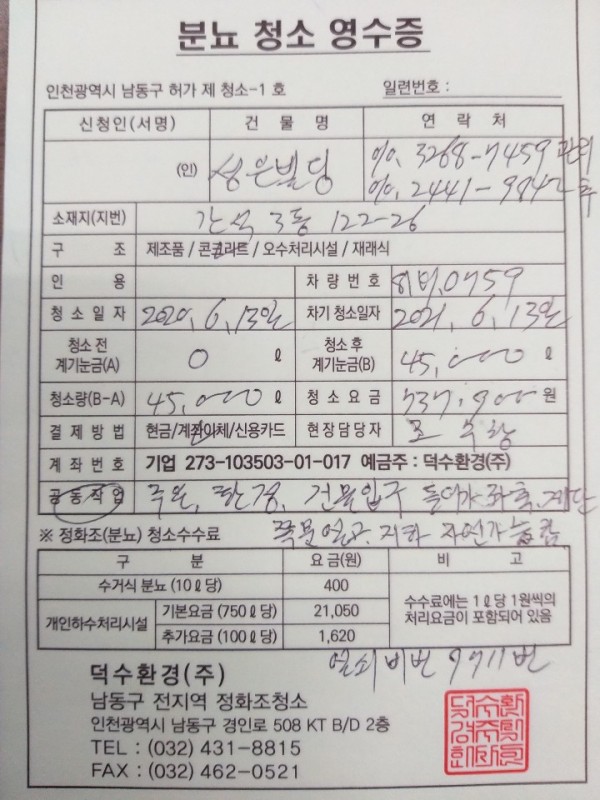 분뇨 청소 영수증
인천광역시 남동구 허가 제 청소-1 호 일련번호 :
신청인(서명) 건 물 명 연 락 처
(인) 성은빌딩 010. 3268-7459 관리
010. 2441-9842
소재지(지번) 간석 3동 122-26
구 조 제조품 / 콘크리트 / 오수처리시설 / 재래식
인 용 차 량 번 호 0759
청 소 일 자 2020. 6. 13일 차기 청소일자 2021. 6. 13일
청소 전 계기눈금(A) 0 ℓ 청소 후 계기눈금(B) 45,000 ℓ
청소량(B-A) 45,000 ℓ 청 소 요 금 737,900 원
결 제 방 법 현금/계좌이체/신용카드 현장담당자 조
계 좌 번 호 기업 273-103503-01-017 예금주 : 덕수환경(주)
공 동 작 업 건물입구 들어가 좌측
※ 정화조(분뇨) 청소수수료 쪽문열고 지하
구 분 요 금(원) 비 고
수거식 분뇨 (10ℓ당) 400 수수료에는 1ℓ당 1원씩의
처리요금이 포함되어 있음
개인하수처리시설 기본요금 (750ℓ당) 21,050
추가요금 (100ℓ당) 1,620
열쇠 비번 9711번
덕수환경(주)
남동구 전지역 정화조청소
인천광역시 남동구 경인로 508 KT B/D 2층
TEL : (032) 431-8815
FAX : (032) 462-0521